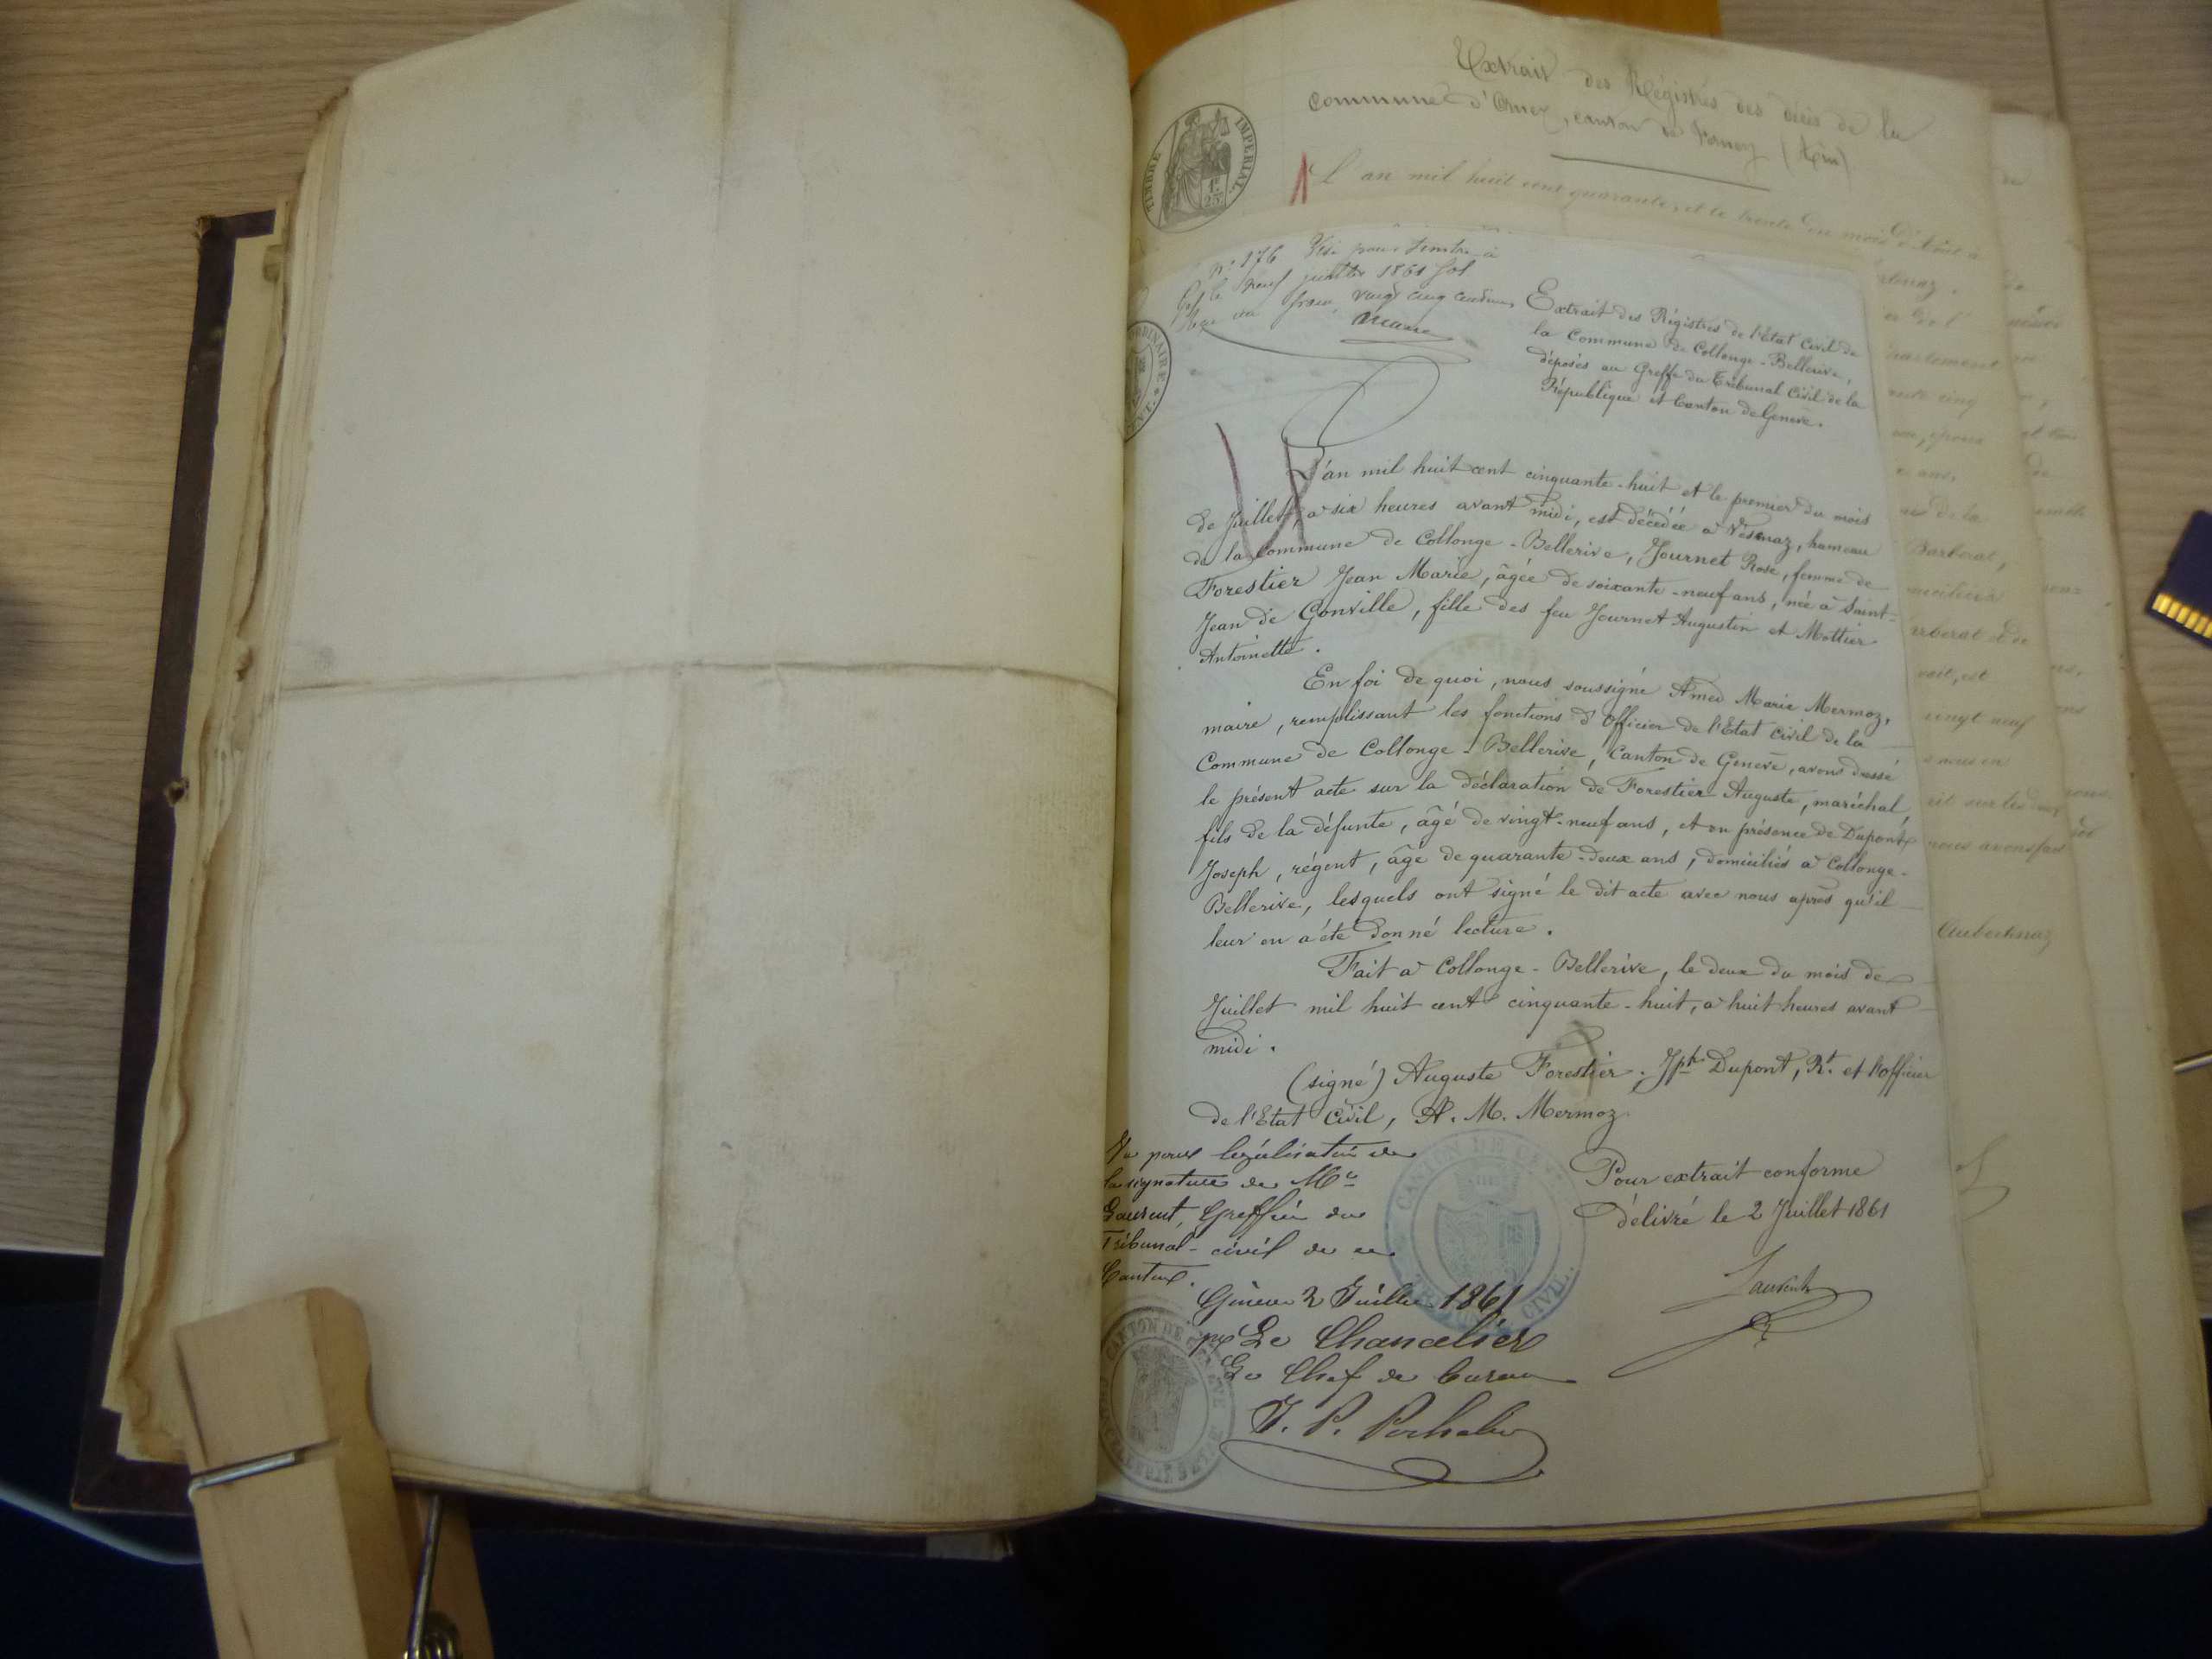 Extrait des Régistres des décès de la
commune d'Ornex, canton de Ferney (Ain)
TIMBRE IMPERIAL
1F 25c
L'an mil huit cent quarante, et le trente du mois d'Août à
N° 176 Visé pour timbre à
Gex le neuf juillet 1861 fol
Reçu un franc vingt cinq centimes
Extrait des Régistres de l'Etat Civil de
la Commune de Collonge-Bellerive,
déposés au Greffe du Tribunal Civil de la
République et Canton de Genève.
L'an mil huit cent cinquante-huit et le premier du mois
de Juillet, à six heures avant midi, est décédée à Vésenaz, hameau
de la Commune de Collonge-Bellerive, Journet Rose, femme de
Forestier Jean Marie, âgée de soixante-neuf ans, née à Saint-
Jean de Gonville, fille des feu Journet Augustin et Mottier
Antoinette.
En foi de quoi, nous soussigné Amed Marie Mermoz,
maire, remplissant les fonctions d'Officier de l'Etat Civil de la
Commune de Collonge-Bellerive, Canton de Genève, avons dressé
le présent acte sur la déclaration de Forestier Auguste, maréchal,
fils de la défunte, âgé de vingt-neuf ans, et en présence de Dupont
Joseph, régent, âgé de quarante-deux ans, domiciliés à Collonge-
Bellerive, lesquels ont signé le dit acte avec nous après qu'il
leur en a été donné lecture.
Fait à Collonge-Bellerive, le deux du mois de
Juillet mil huit cent cinquante-huit, à huit heures avant
midi.
(signé) Auguste Forestier. Jph Dupont, Rt. et l'officier
de l'Etat Civil, A. M. Mermoz.
Vu pour légalisation de
la signature de Mr
Laurent, Greffier du
Tribunal civil de ce
Canton.
Genève 2 Juillet 1861
pr Le Chancelier
Le Chef de bureau
J. P.
CANTON DE GENEVE
Pour extrait conforme
délivré le 2 Juillet 1861
Laurent
CANTON DE GENEVE
TRIBUNAL CIVIL